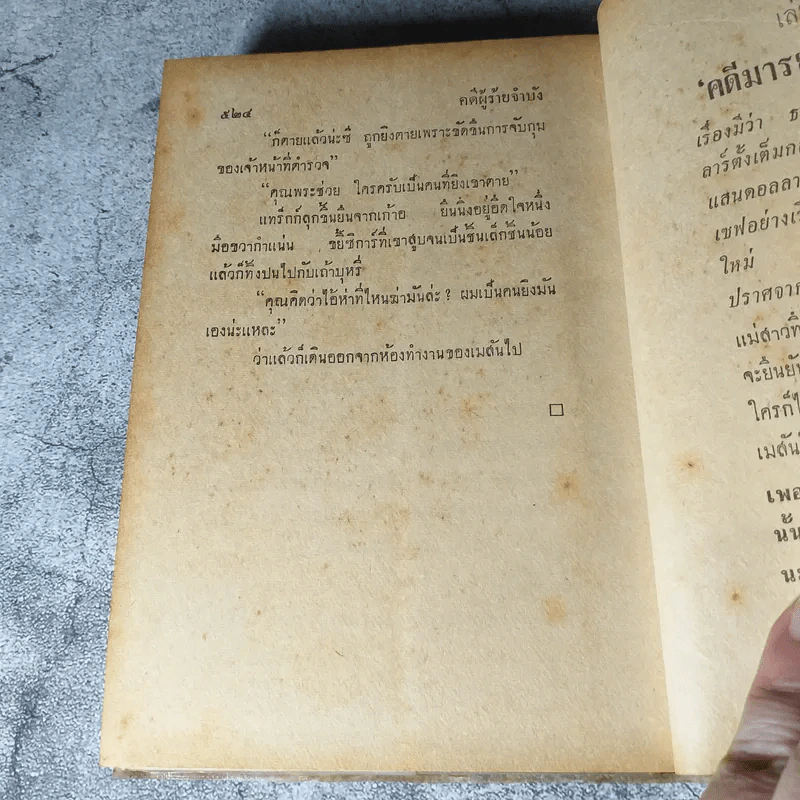 ๕๒๔ คดีผู้ร้ายจำบัง
“ก็ตายแล้วน่ะซี ถูกยิงตายเพราะขัดขืนการจับกุม
ของเจ้าหน้าที่ตำรวจ”
“คุณพระช่วย ใครครับเป็นคนที่ยิงเขาตาย”
แทร็กก์ลุกขึ้นยืนจากเก้าอี้ ยืนนิ่งอยู่อึดใจหนึ่ง
มือขวากำแน่น ขยี้ซิการ์ที่เขาสูบจนเป็นชิ้นเล็กชิ้นน้อย
แล้วก็ทิ้งปนไปกับเถ้าบุหรี่
“คุณคิดว่าไอ้ห่าที่ไหนฆ่ามันล่ะ? ผมเป็นคนยิงมัน
เองน่ะแหละ”
ว่าแล้วก็เดินออกจากห้องทำงานของเมสันไป
‘คดีมาร
เรื่องมีว่า
ลาร์ตั้งเต็ม
แสนดอลลา
เซฟอย่าง
ใหม่
ปราศจาก
แม่สาว
จะยืนยัน
ใครก็
เมสัน